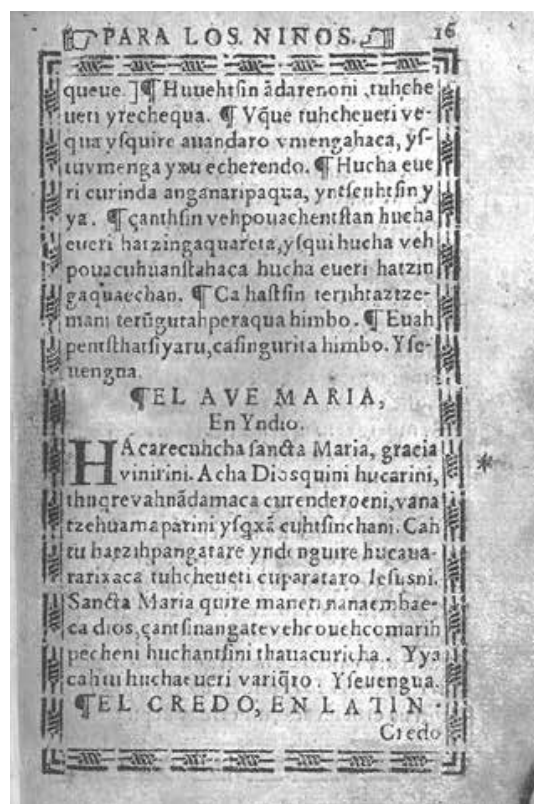 PARA LOS. NINOS. 16
queue.]¶ Huuehtſin ãdarenoni ,tuhche
ueti yrechequa. ¶ Vq̃ue tuhcheueti ve-
qua yſquire auandaro vmengahaca, yſ-
tuvmenga yxu echerendo. ¶ Hucha eue
ri curinda anganaripaqua, yntſeuhtſin y
ya. ¶ çanthſin vehpouachentſtan hucha
eueri hatzingaquareta,yſqui hucha veh
pouacuhuanſtahaca hucha eueri hatzin
gaquaechan. ¶ Ca haſtſin teruhtaztze-
mani terũgutahperaqua himbo. ¶ Euah
pentſthatſiyaru,caſingurita himbo. Yſe-
uengua.
¶EL AVE MARIA,
En Yndio.
HAcarecuhcha ſancta Maria, gracia
vinirini. Acha Diosquini hucarini,
thuq̃revahnãdamaca curenderoeni,vana
tzehuamaparini yſqxã cuhtſinchani. Cah
tu hatzihpangatare ynde nguire hucaua-
rarixaca tuhcheueti cuparataro Ieſusni.
Sancta Maria quire maneri nanaembae-
ca dios,çantſinangatevehcouehcomarih
pecheni huchantſini thauacuricha. Yya
cahtu huchaeueri variq̃to. Yſeuengua.
¶EL CREDO, EN LATIN
Credo